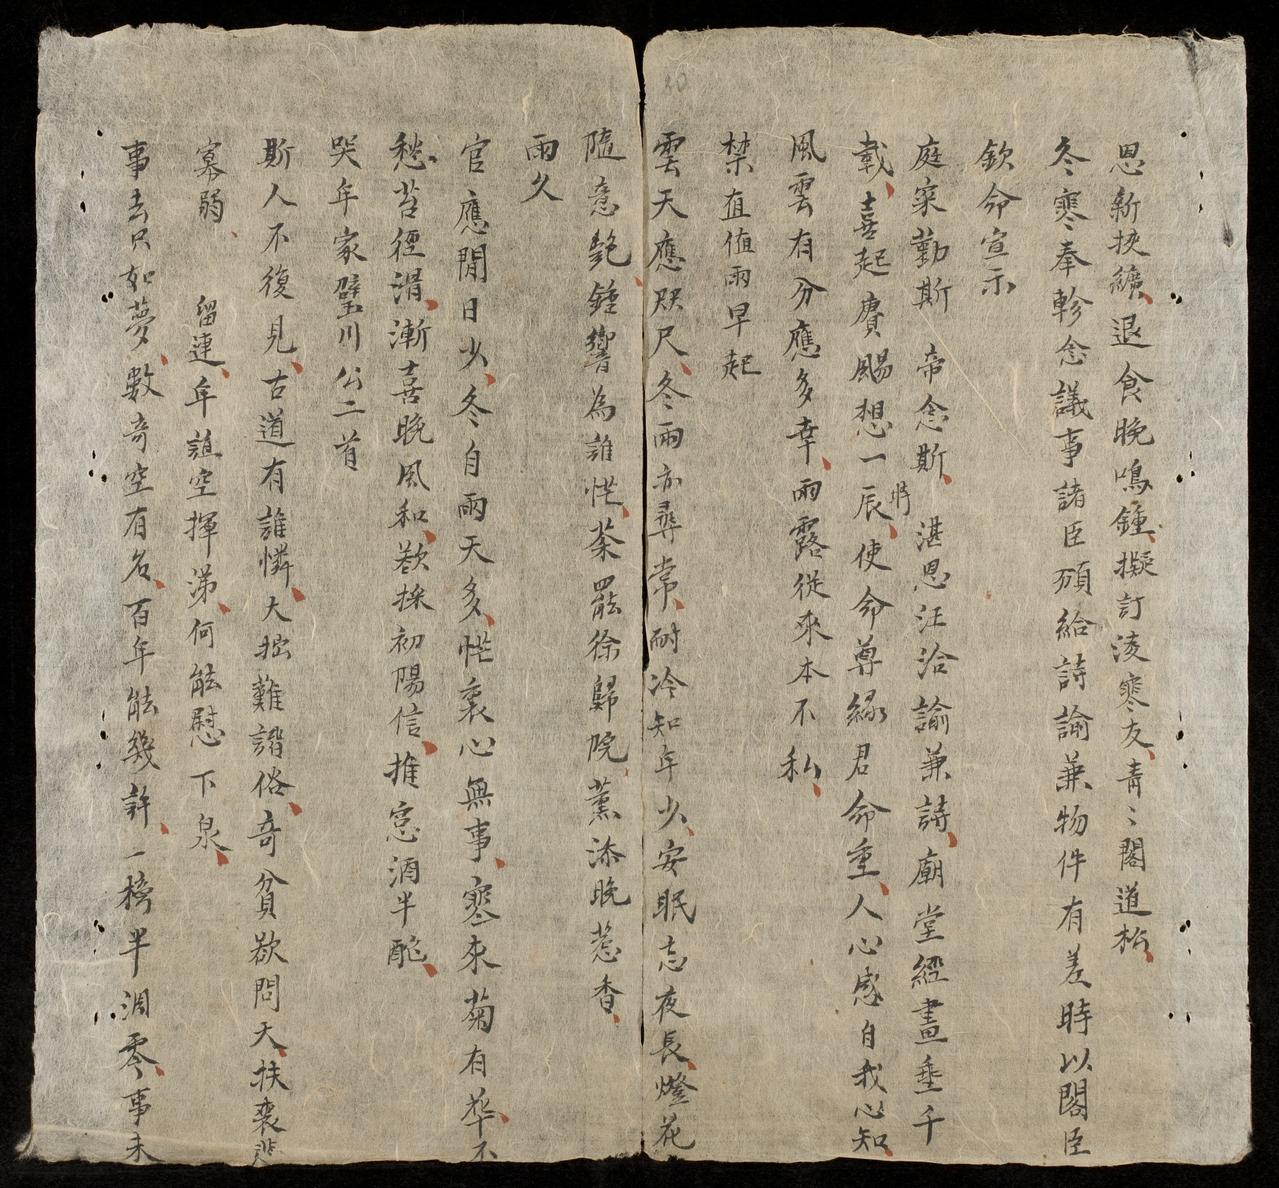 恩新挾纊退食晚鳴鍾擬訂淩寒友青〻閣道松
冬寒奉軫念議事諸臣頒給詩諭兼物件有差時以閣臣
欽命宣示
庭寀勤斯帝念斯湛恩汪洽諭兼詩廟堂經畫垂千
載喜起賡颺想一辰時使命尊緣君命重人心感自我心知
風雲有分應多幸雨露從來本不私
禁直値雨早起
雲天應咫尺冬雨亦尋常耐冷知年少安眠忘夜長燈花
隨意艶鍾響為誰忙茶罷徐歸院薰添晚惹香
雨久
官應閒日少冬自雨天多忙裏心無事寒來菊有華不
愁苔徑滑漸喜晚風和欲採初陽信推窓酒半酡
哭年家璧川公二首
斯人不復見古道有誰憐大拙難諧俗奇貧欲問天扶喪悲
寡弱留連年誼空揮涕何能慰下泉
事去只如夢數奇空有名百年能幾許一榜半凋零事未